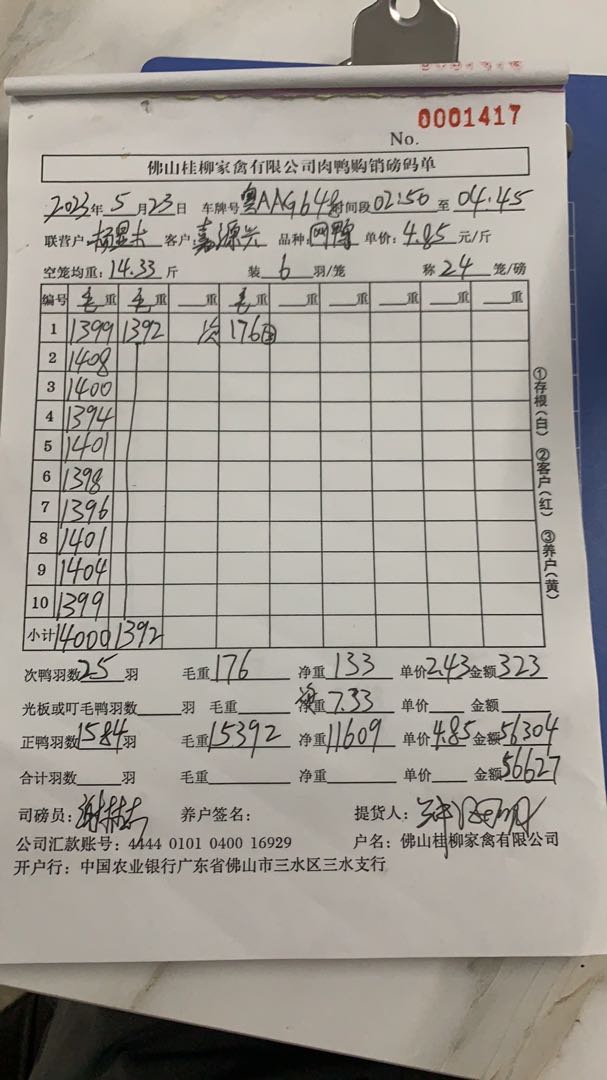 No. 0001417
佛山桂柳家禽有限公司肉鸭购销磅码单
2023年5月23日 车牌号粤AAG648 时间段02:50至04:45
联营户: 客户:嘉源兴 品种: 单价:4.85元/斤
空笼均重:14.33斤 装6羽/笼 称24笼/磅
编号 毛重 毛重 重 毛重 重 重 重 重
1 1399 1392 次 176
2 1408
3 1400
4 1394
5 1401
6 1398
7 1396
8 1401
9 1404
10 1399
小计 14000 1392
①存根(白) ②客户(红) ③养户(黄)
次鸭羽数25羽 毛重176 净重133 单价2.43金额323
光板或叮毛鸭羽数 羽 毛重 净重7.33 单价 金额
正鸭羽数1584羽 毛重15392 净重11609 单价4.85金额56304
合计羽数 羽 毛重 净重 单价 金额56627
司磅员: 养户签名: 提货人:
公司汇款账号: 4444 0101 0400 16929 户名: 佛山桂柳家禽有限公司
开户行: 中国农业银行广东省佛山市三水区三水支行